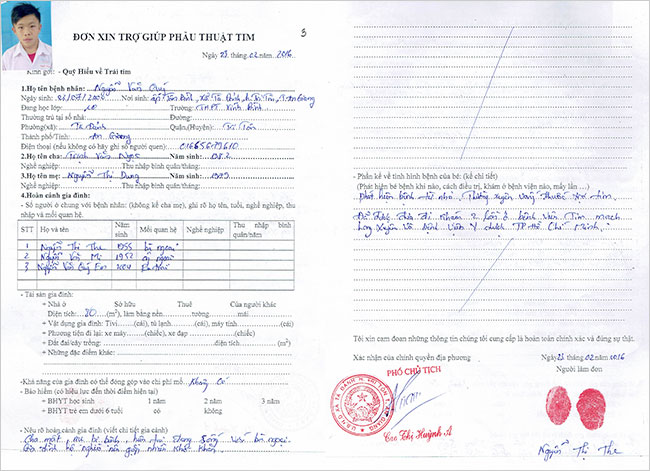 3
ĐƠN XIN TRỢ GIÚP PHẪU THUẬT TIM
Ngày 23 tháng 02 năm 2016
Kính gởi: - Quỹ Hiểu về Trái tim
1.Họ tên bệnh nhân: Nguyễn Văn Quý
Ngày sinh: Nơi sinh:
Đang học lớp: 10 Trường: THPT
Thường trú tại số nhà: Đường:
Phường(xã): Tà Đảnh Quận,(Huyện): Tri Tôn
Thành phố/Tỉnh: An Giang
Điện thoại (nếu không có hãy ghi số người quen):
2.Họ tên cha: Trịnh Văn Ngọc Năm sinh:
Nghề nghiệp: Thu nhập bình quân/tháng:
3.Họ tên mẹ: Nguyễn Thị Dung Năm sinh: 1979
Nghề nghiệp: Thu nhập bình quân/tháng:
4.Hoàn cảnh gia đình:
- Số người ở chung với bệnh nhân: (không kể cha mẹ), ghi rõ họ tên, tuổi, nghề nghiệp, thu
nhập và mối quan hệ.
STT Họ và tên Năm sinh Mối quan hệ Nghề nghiệp Thu nhập bình quân/năm
1 Nguyễn Thị The 1955 bà ngoại
2 Nguyễn Văn 1952 ông ngoại
3 Nguyễn Văn Quý Em 2004 Em
- Tài sản gia đình:
+ Nhà ở Sở hữu Thuê Của người khác
Diện tích: 80 (m²), làm bằng nền tường mái
+ Vật dụng gia đình: Tivi (cái), tủ lạnh (cái), máy tính (cái)
+ Phương tiện đi lại: xe máy (chiếc), xe đạp (chiếc)
+ Đất đai/cây trồng: diện tích (m²)
+ Những đặc điểm khác:
-Khả năng của gia đình có thể đóng góp vào chi phí mổ: Không có
- Bảo hiểm (có hiệu lực đến thời điểm hiện tại)
+ BHYT học sinh 1 năm 2 năm 3 năm
+ BHYT trẻ em dưới 6 tuổi có không
- Nêu rõ hoàn cảnh gia đình (viết chi tiết gia cảnh)
Cha mất, mẹ bị bệnh, hiện tại đang sống với bà ngoại
Gia đình hộ nghèo nên gặp nhiều khó khăn
- Phần kể về tình hình bệnh của bé: (kể chi tiết)
(Phát hiện bệnh từ khi nào, cách điều trị, khám ở bệnh viện nào, mấy lần ...)
Phát hiện bệnh từ nhỏ, Thường xuyên uống thuốc trợ tim.
Đã được đưa đi khám 2 lần ở bệnh viện Tim mạch
Long Xuyên và Bệnh viện Y dược TP Hồ Chí Minh.
Tôi xin cam đoan những thông tin chúng tôi cung cấp là hoàn toàn chính xác và đúng sự thật.
Xác nhận của chính quyền địa phương
Ngày 23 tháng 02 năm 2016
Người làm đơn
PHÓ CHỦ TỊCH
Cao Thị Huỳnh A
Nguyễn Thị The